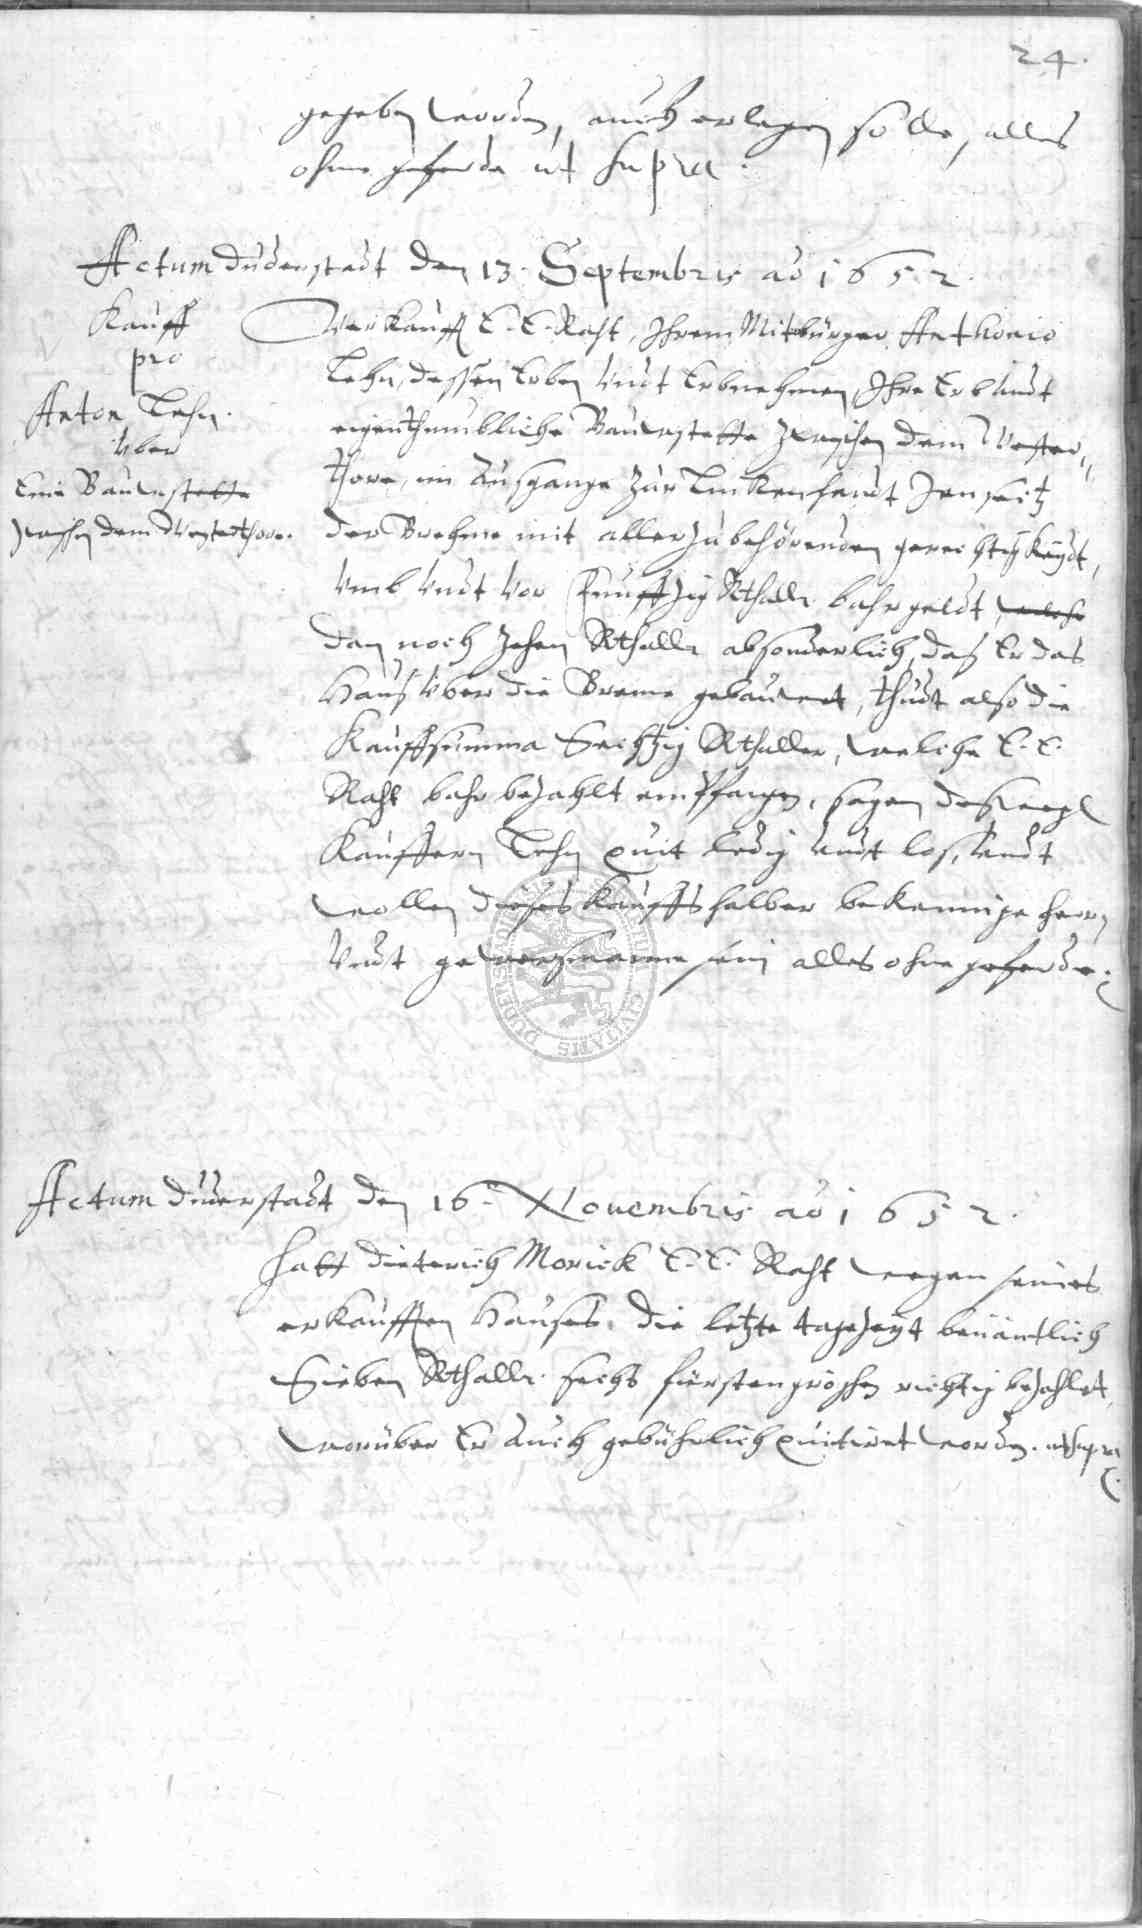 24.
gegeben worden, auch erlegen solle, alles
ohne geferde ut supra.
Actum Duderstadt den 13. Septembris ao 1652.
Kauff
pro
Anton Lehn.
über
Eine Bauwstette
zwischen dem Westerthore.
Verkaufft E. E. Raht, Ihrem Mitbürger Anthonio
Lehn, dessen Erben undt Erbnehmen Ihre Erb undt
eigenthumbliche Bauwstette zwischen dem Wester-
thore, im Ausgange zur Linckenhandt Jenseitz
der Brehme mit aller zubehörenden gerechtigkeydt,
umb undt vor Funffzig Rthallr bahr geldt, welche
dan noch zehen Rthallr absonderlich, daß Er das
Hauß über die Breme gebauwet, thudt also die
Kauffsumma Sechtzig Rthaller, welche E. E.
Raht bahr bezahlt empfangen, sagen
Kauffern Lehn quit ledig undt loß, undt
wollen dieses Kauffs halber bekennige herrn
undt gewehrsmanne sein alles ohne geferde.
CIVITATIS DUDERSTADT
Actum Duderstadt den 16. Novembris ao 1652.
Hatt Dieterich Morick E. E. Raht wegen seines
erkaufften Hauses, die letzte tagezeyt benantlich
Sieben Rthallr. sechs fürstengroschen richtig bezahlet,
worüber Er auch gebührlich quitiret worden. ut supra